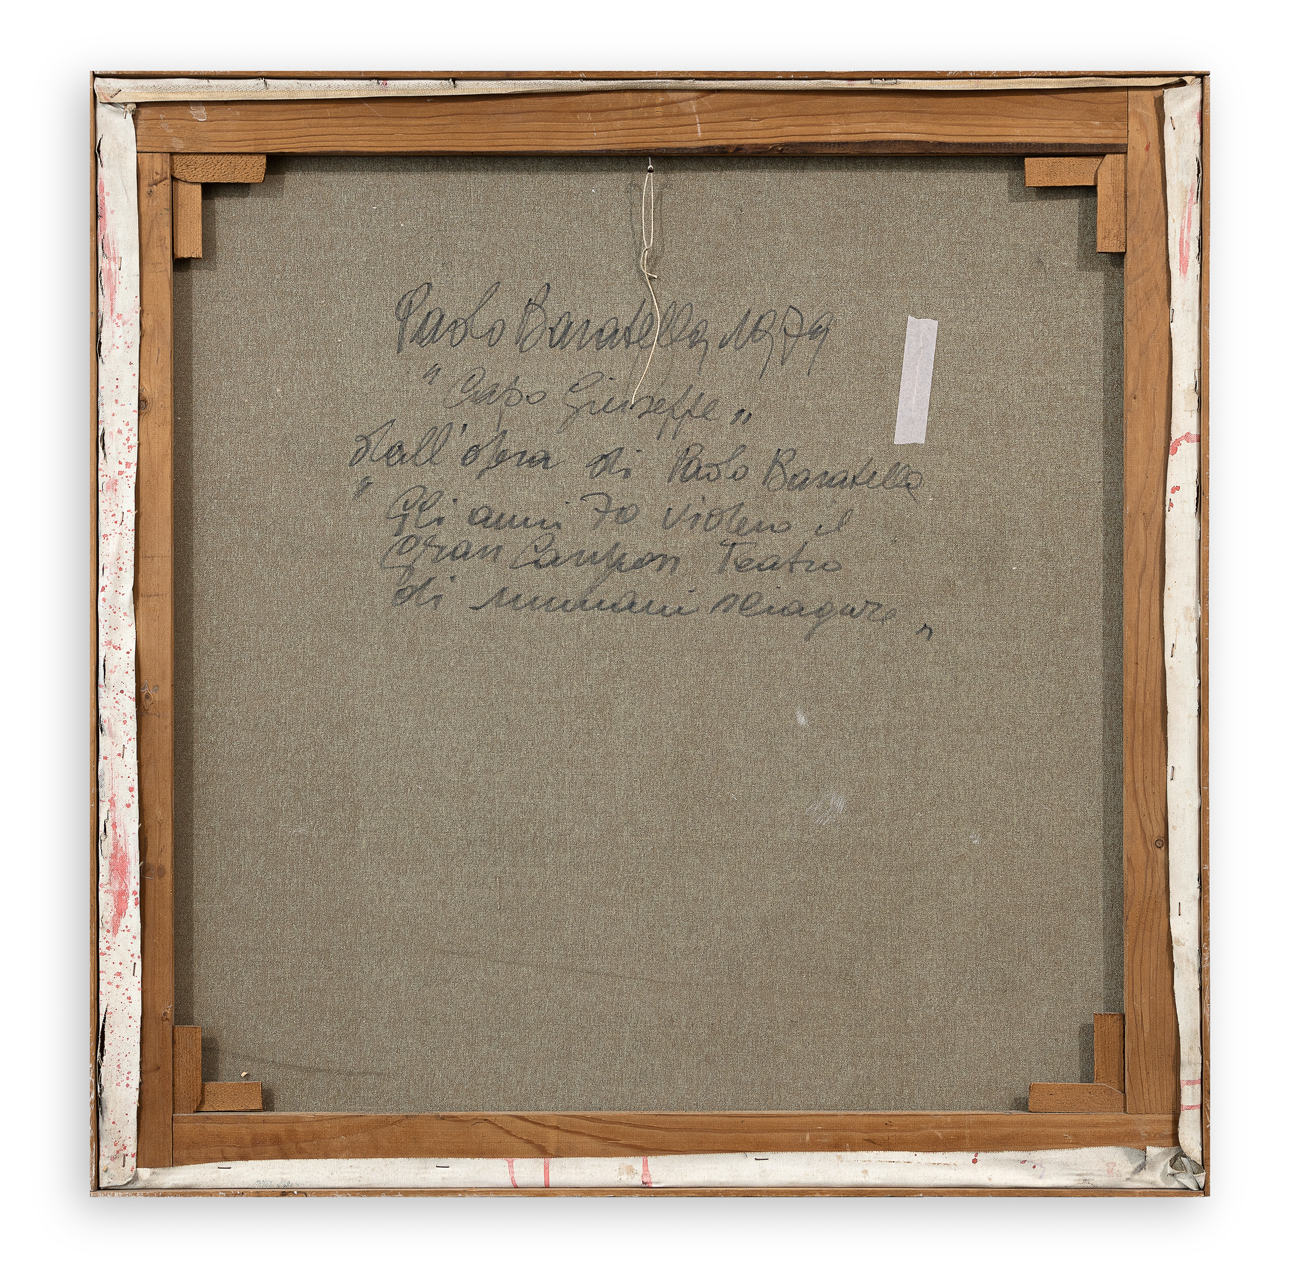 Paolo Baratella 1979
"Capo Giuseppe"
dall'opera di Paolo Baratella
"Gli anni 70 il
gran Teatro
di sciagure"